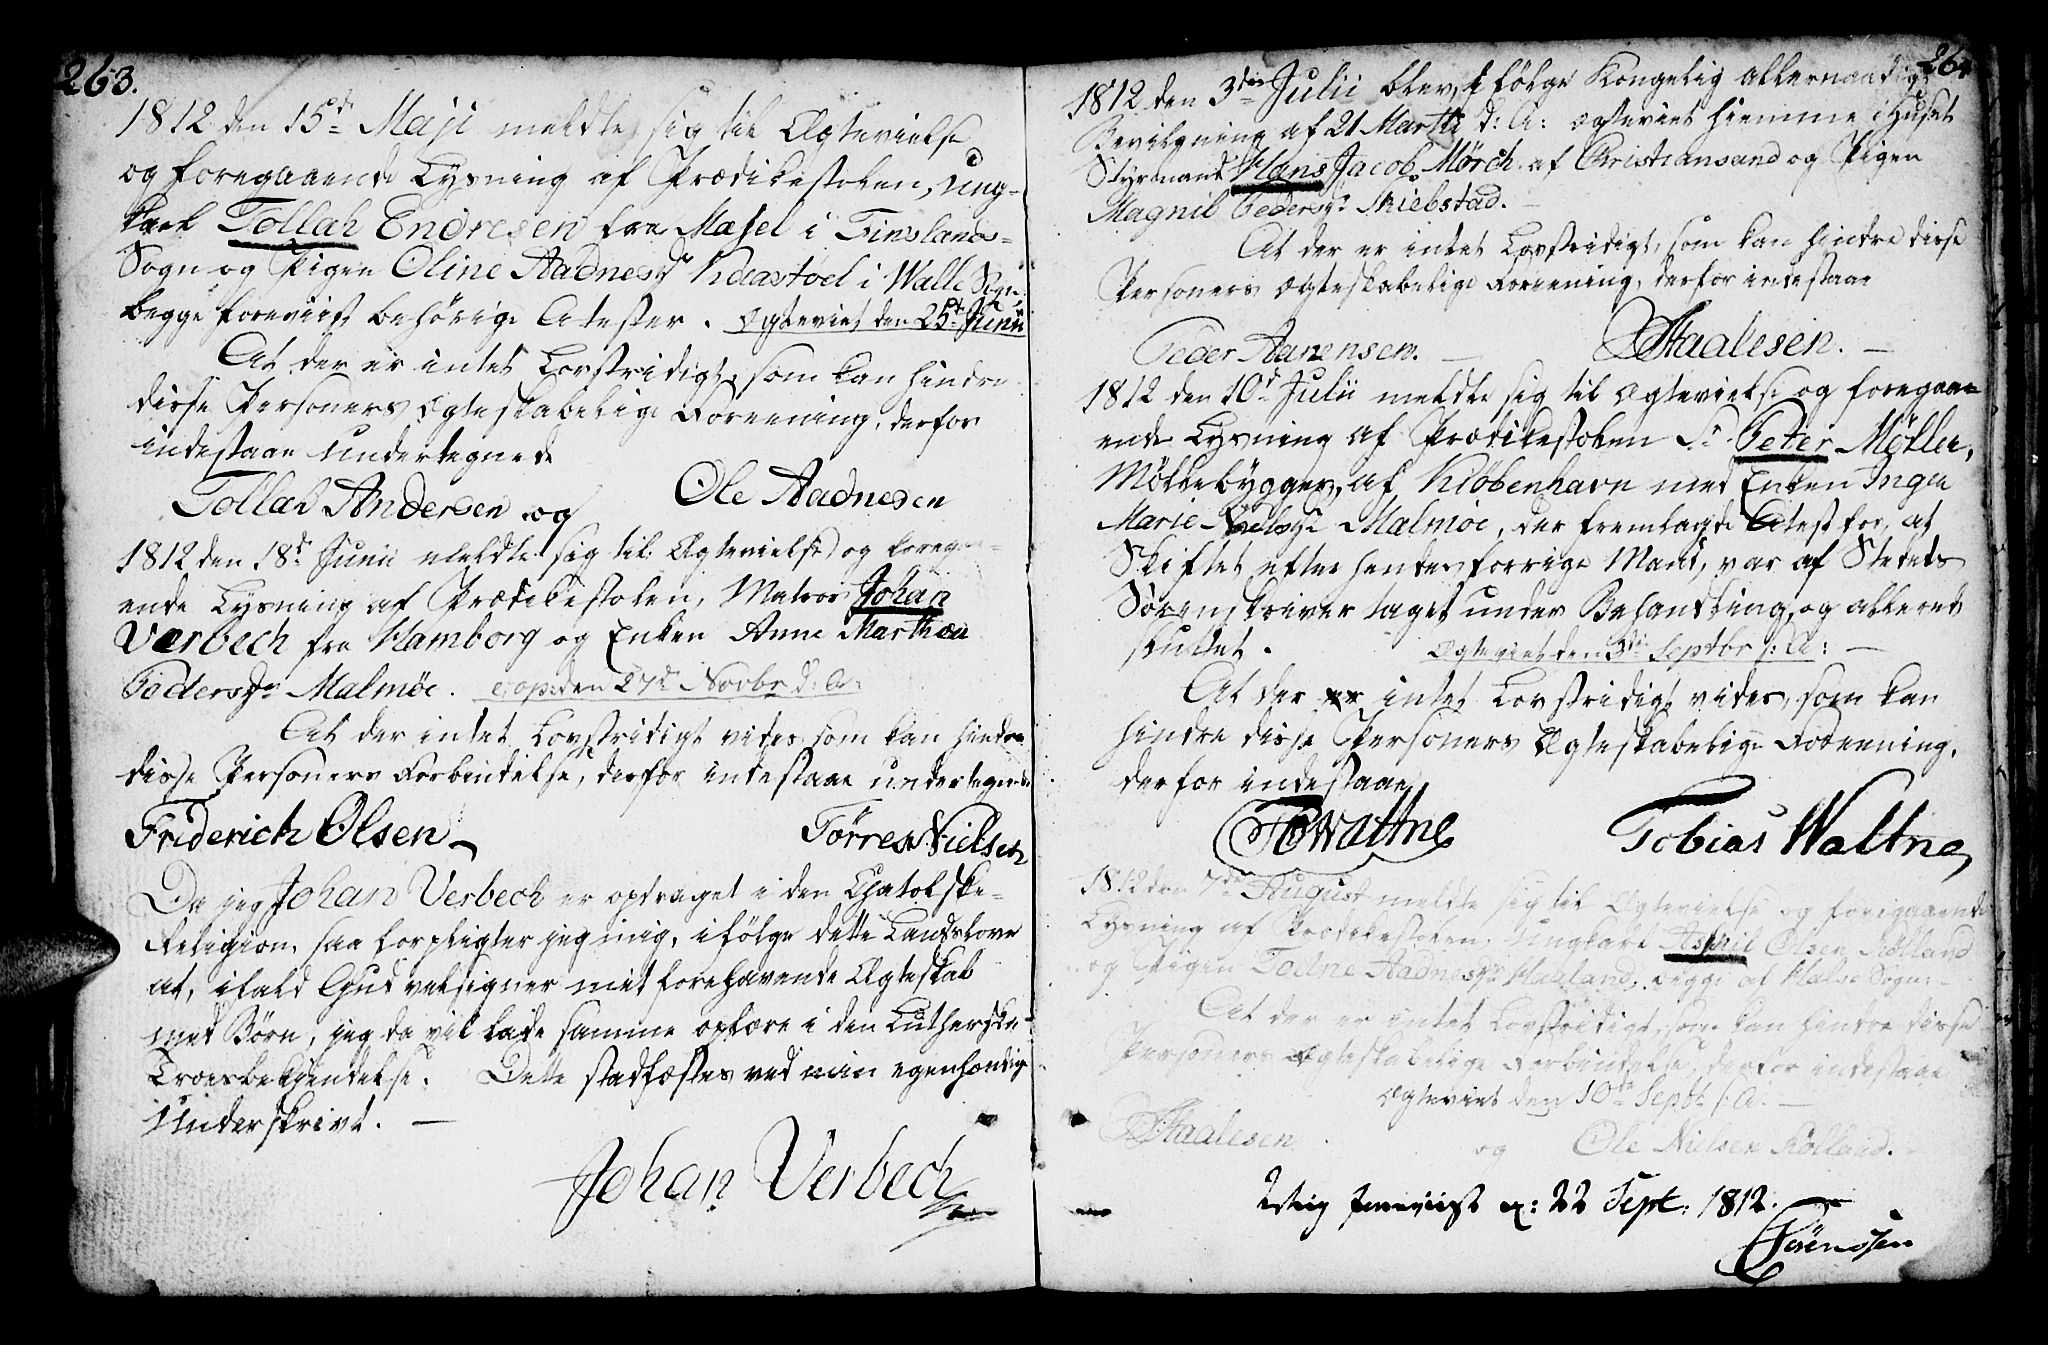 263.
1812 den 15d Maji meldte sig til Ægtevielse
og foregaaende Lysning af Prædikestolen, Ung-
karl Tollah Endresen fra Masel i Finslands-
Sogn og Pigen Oline Aadnesdr Kleastoel i Walle Sogn,
begge foreviist behørige Atester. Ægteviet den 25d Junii
At der er intet Lovstridigt, som kan hindre
disse Personers ægteskabelige Foreening, derfor
indestaae undertegnede
Tollak Andersen og Ole Aadnesen
1812 den 18d Junii meldte sig til Ægtevielse og foregaa-
ende Lysning af Prædikestolen, Matros Johan
Værbech fra Hamborg og Enken Anne Marthea
Pedersdr Malmøe. cop: den 27d Novbr d: A:
At der intet Lovstridigt vides som kan hindre
disse Personers Forbindelse, derfor indestaae undertegnede
Friderich Olsen Tørres Nielsen
Da jeg Johan Verbech er opdraget i den Chatolske-
Religion, saa forpligter jeg mig, ifølge dette Landslove
at, ifald Gud velsigner mit forehavende Ægteskab
med Børn, jeg da vil lade samme oplære i den Lutherske
Troesbekjendelse. Dette stadfæstes ved min egenhændig
Underskrivt.
Johan Verbech
264
1812 den 3die Julii blev, ifølge Kongelig allernaadigst
Bevilgning af 21 Martii d: A: ægteviet hiemme i Huset
Styrmand Hans Jacob Mørch af Christiansand og Pigen
Magnil Pedersdr Skiebstad.
At der er intet Lovstridigt, som kan hindre disse
Personers ægteskabelige Foreening, derfor indestaae
Peder Aanensen. Staalesen.
1812 den 10d Julii meldte sig til Ægtevielse og foregaa-
ende Lysning af Prædikestolen Sr Peter Möller,
Møllebygger, af Kiöbenhavn med Enken Inger
Marie Nielsdr Malmøe, der fremlagde Atest for, at
Skiftet efter hendes forrige Mand, var af Stedets
Sorenskriver taget under Behandling, og allerede
sluttet. Ægteviet den 3die Septbr s: A:
At der er intet Lovstridigt vides, som kan
hindre disse Personers Ægteskabelige Foreening,
derfor indestaae
Wattne Tobias Wattne
1812 den 7de August meldte sig til Ægtevielse og foregaaende
Lysning af Prædikestolen, Ungkarl Aschil Olsen Rølland
og Pigen Todne Aadnesdr Haaland, begge af Halse Sogn.
At der er intet Lovstridigt, som kan hindre disse
Personers Ægteskabelige Forbindelse, derfor indestaae
Ægteviet den 10de Septbr s: A:
Staalesen og Ole Nielsen Rølland.
Mig foreviist d: 22 Sept: 1812.
Sørenssen